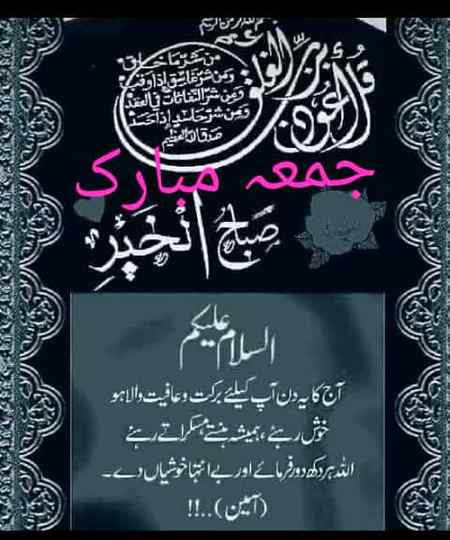 بسم الله الرحمن الرحيم
قُلْ أَعُوذُ بِرَبِّ الْفَلَقِ
مِنْ شَرِّ مَا خَلَقَ
وَمِنْ شَرِّ غَاسِقٍ إِذَا وَقَبَ
وَمِنْ شَرِّ النَّفَّاثَاتِ فِي الْعُقَدِ
وَمِنْ شَرِّ حَاسِدٍ إِذَا حَسَدَ
صدق الله العظيم
جمعہ مبارک
صَبَاحُ الْخَيْرِ
السلام علیکم
آج کا یہ دن آپ کیلئے برکت و عافیت والا ہو
خوش رہئے، ہمیشہ ہنستے مسکراتے رہئے
اللہ ہر دکھ دور فرمائے اور بے انتہا خوشیاں دے۔
(آمین)..!!